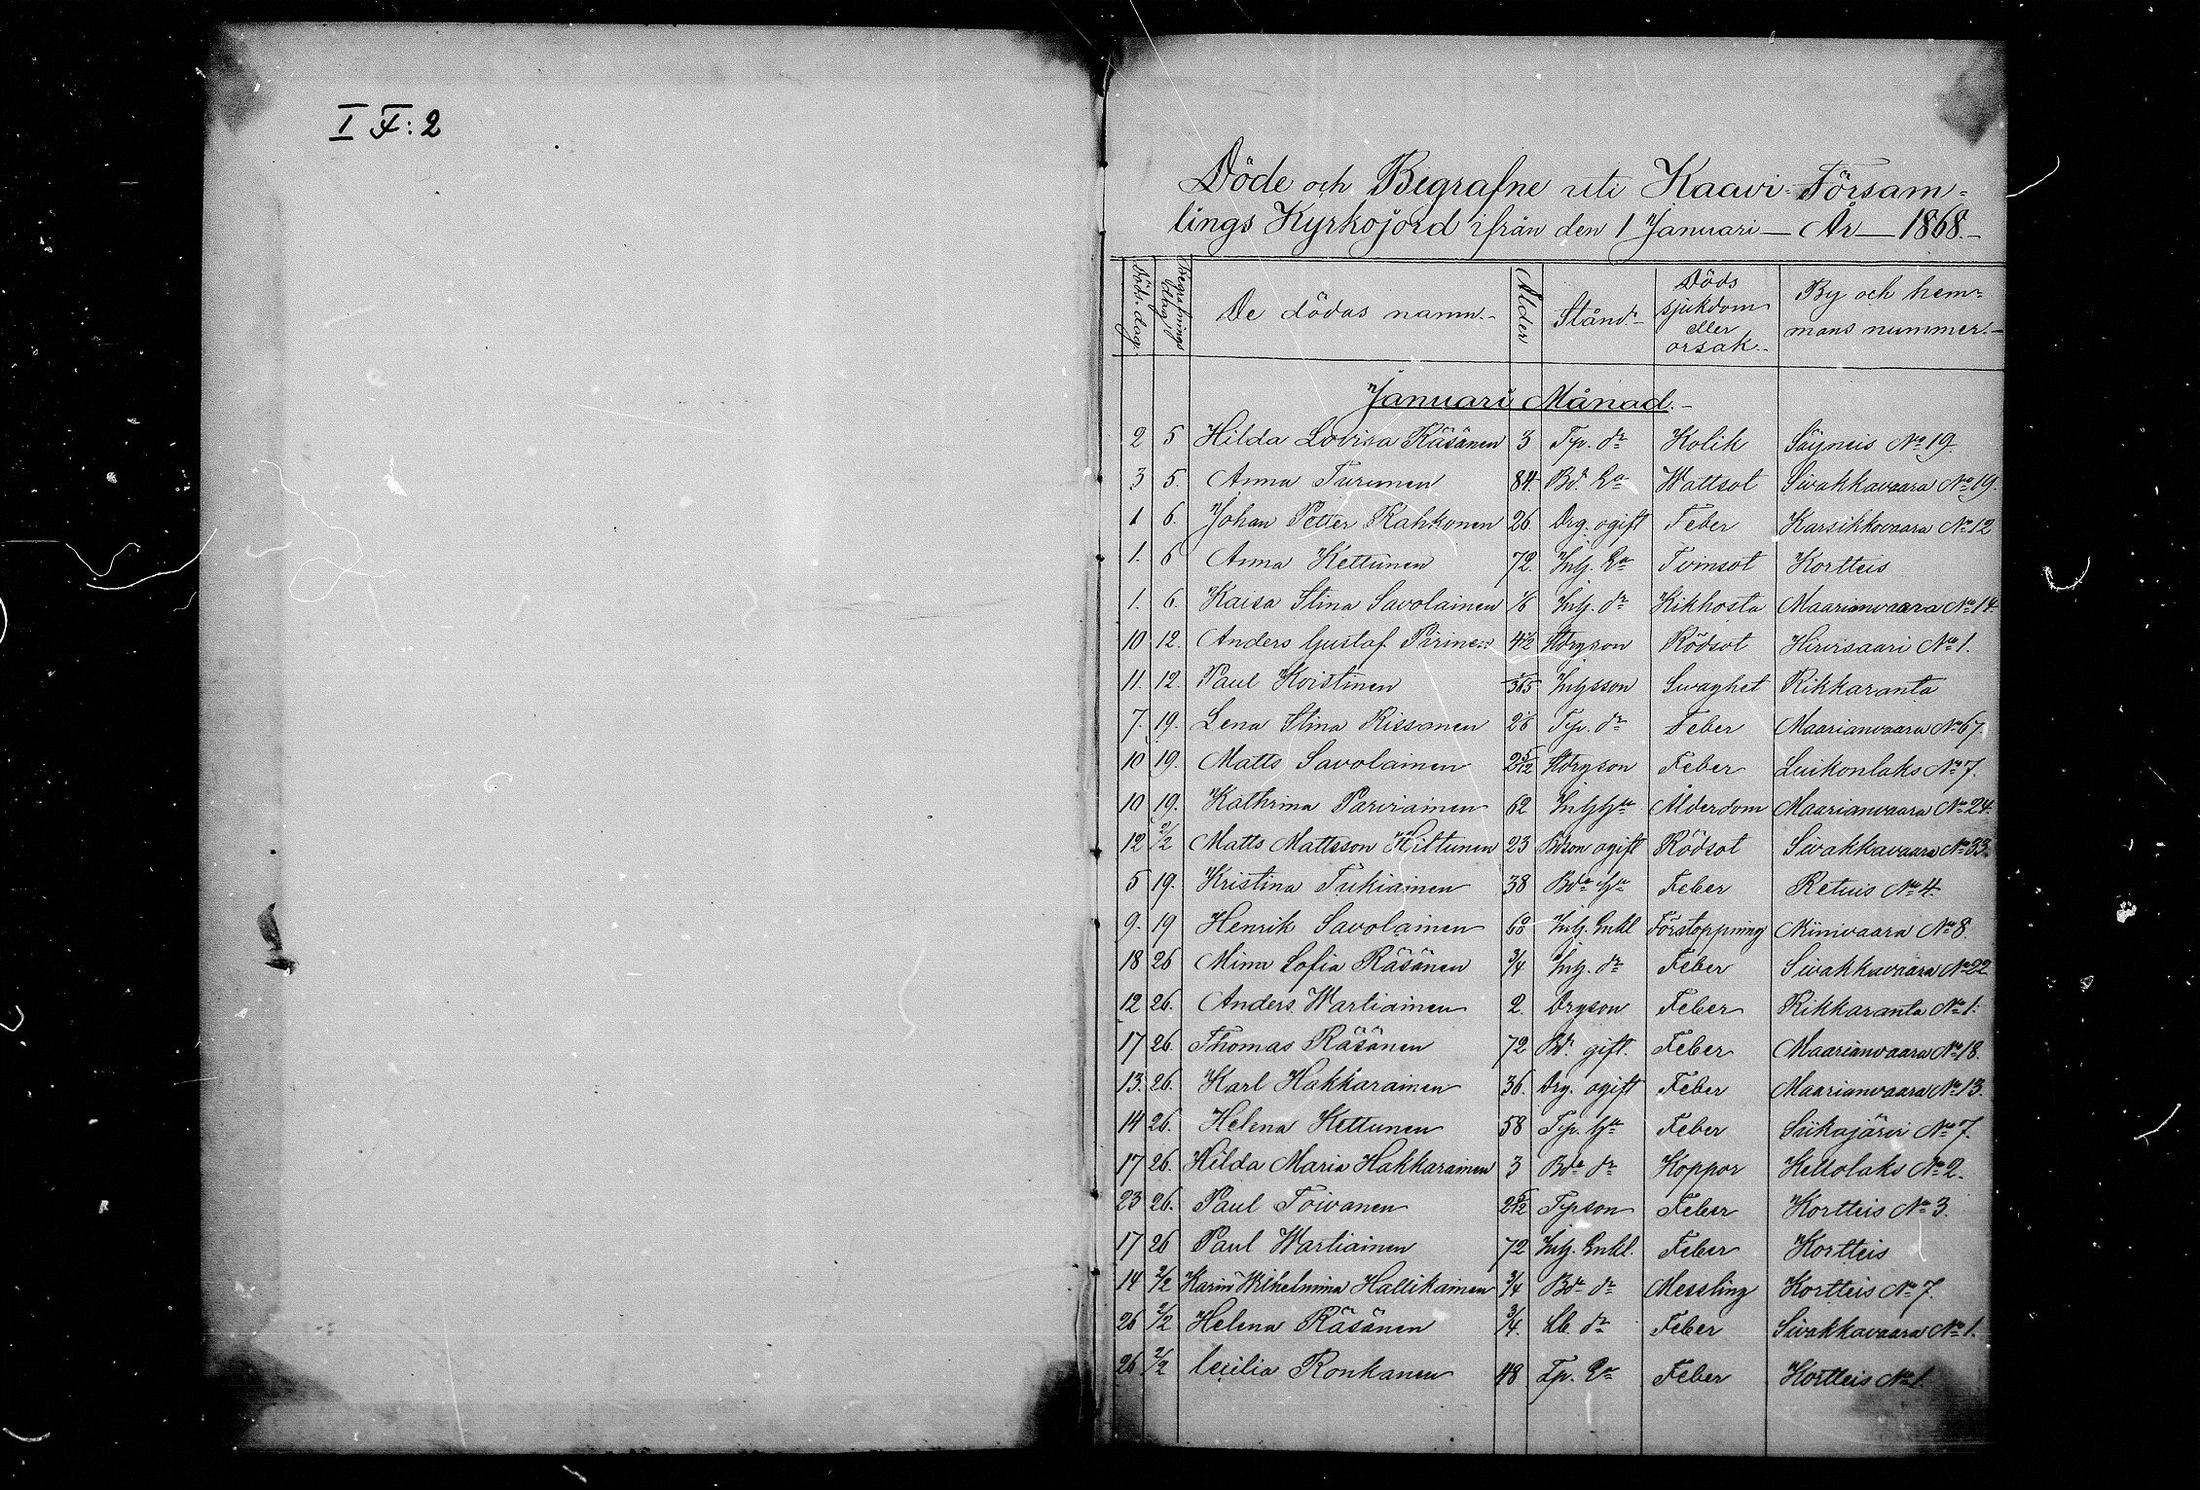 I F:2
Döde och Begrafne uti Kaavi Försam=
lings Kyrkojord ifrån den 1 Januari — År — 1868.
Döds dag. Begrafnings dag. De dödas namn. Ålder Stånd. Döds sjukdom eller orsak. By och hem= mans nummer.
Januari Månad.
2 5 Hilda Lovisa Räsänen 3 Typ. dr Kolik Säyneis No 19.
3 5. Anna Turunen 84. Bd. Ea Wattsot Sivakkavaara No 19.
1 6. Johan Petter Kahkonen 26 Drg. ogift Feber Karsikkovaara No 12
1. 6 Anna Kettunen 72. Inh. Ea Tvinsot Kortteis
1. 6. Kaisa Stina Savolainen 1/6 Inh. dr Kikhosta Maarianvaara No 14.
10 12. Anders Gustaf Pirinen 4 1/2 Rödsot Hirvisaari No 1.
11. 12. Paul Koistinen Inhsson Swaghet Rikkaranta
7. 19. Lena Stina Rissanen Typ. dr Feber Maarianvaara No 67.
10 19. Matts Savolainen 2 5/12 Feber Luikonlaks No 7.
10 19. Kathrina Parviainen 62 Ålderdom Maarianvaara No 24.
12 2/2 Matts Mattsson Hiltunen 23 Bdson ogift Rödsot Sivakkavaara No 33.
5 19. Kristina Tukiainen 38 Bde Feber Retuis No 4.
9. 19 Henrik Savolainen 68 Inh. Enkl Förstoppning Niinivaara No 8.
18 26 Mina Sofia Räsänen 3/4 Inh. dr Feber Sivakkavaara No 22
12 26. Anders Wartiainen 2. Drgson Feber Rikkaranta No 1.
17 26. Thomas Räsänen 72 Bd. gift. Feber Maarianvaara No 18.
13. 26. Karl Hakkarainen 36. Drg. ogift Feber Maarianvaara No 13.
14 26. Helena Kettunen 58 Typ. Feber Siikajärvi No 7.
17 26. Hilda Maria Hakkarainen 3 Bde dr Koppor Keltolaks No 2.
23 26. Paul Toivanen 2 5/12 Typson Feber Kortteis No 3.
17 26 Paul Wartiainen 72 Inh. Enkl. Feber Kortteis
14 2/2 Karin Wilhelmina Hallikainen 3/4 Bde dr Messling Kortteis No 7.
26 2/2 Helena Räsänen 3/4. Lb. dr Feber Sivakkavaara No 1.
26 2/2 Cecilia Ronkanen 48 Tp. Ea Feber Kortteis No 1.